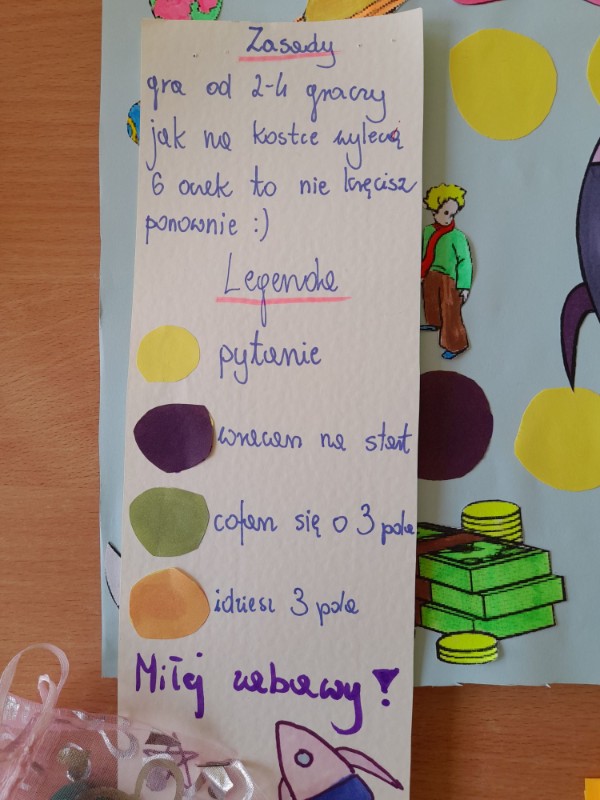 Zasady
gra od 2-4 graczy
jak na kostce wylecą
6 oczek to nie kręcisz
ponownie :)
Legenda
pytanie
wracasz na start
cofasz się o 3 pola
idziesz 3 pola
Miłej zabawy!